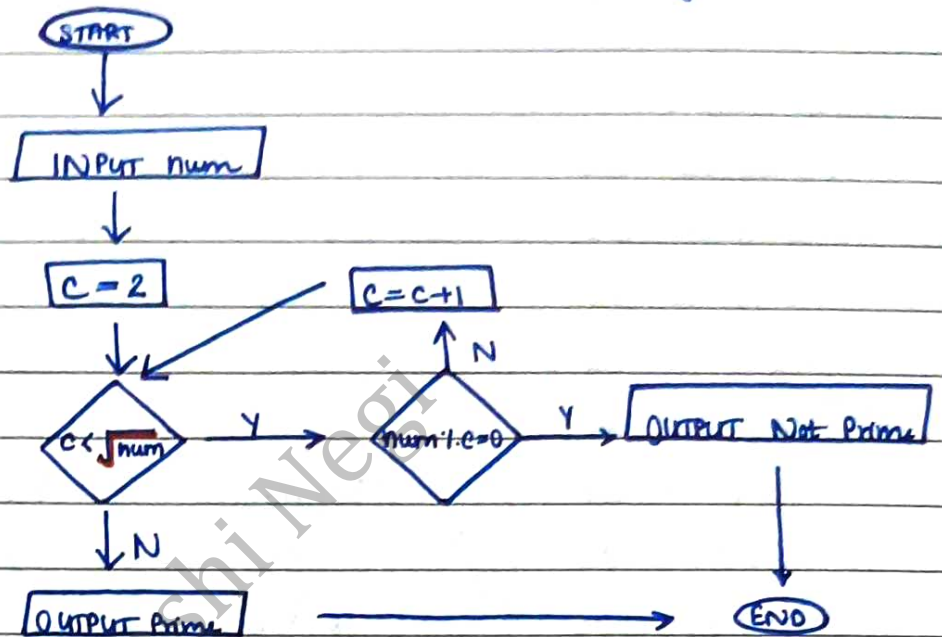 START
INPUT num
C = 2
C = C+1
N
C < √num
Y
num % C = 0
Y
OUTPUT Not Prime
N
OUTPUT Prime
END
shi Negi